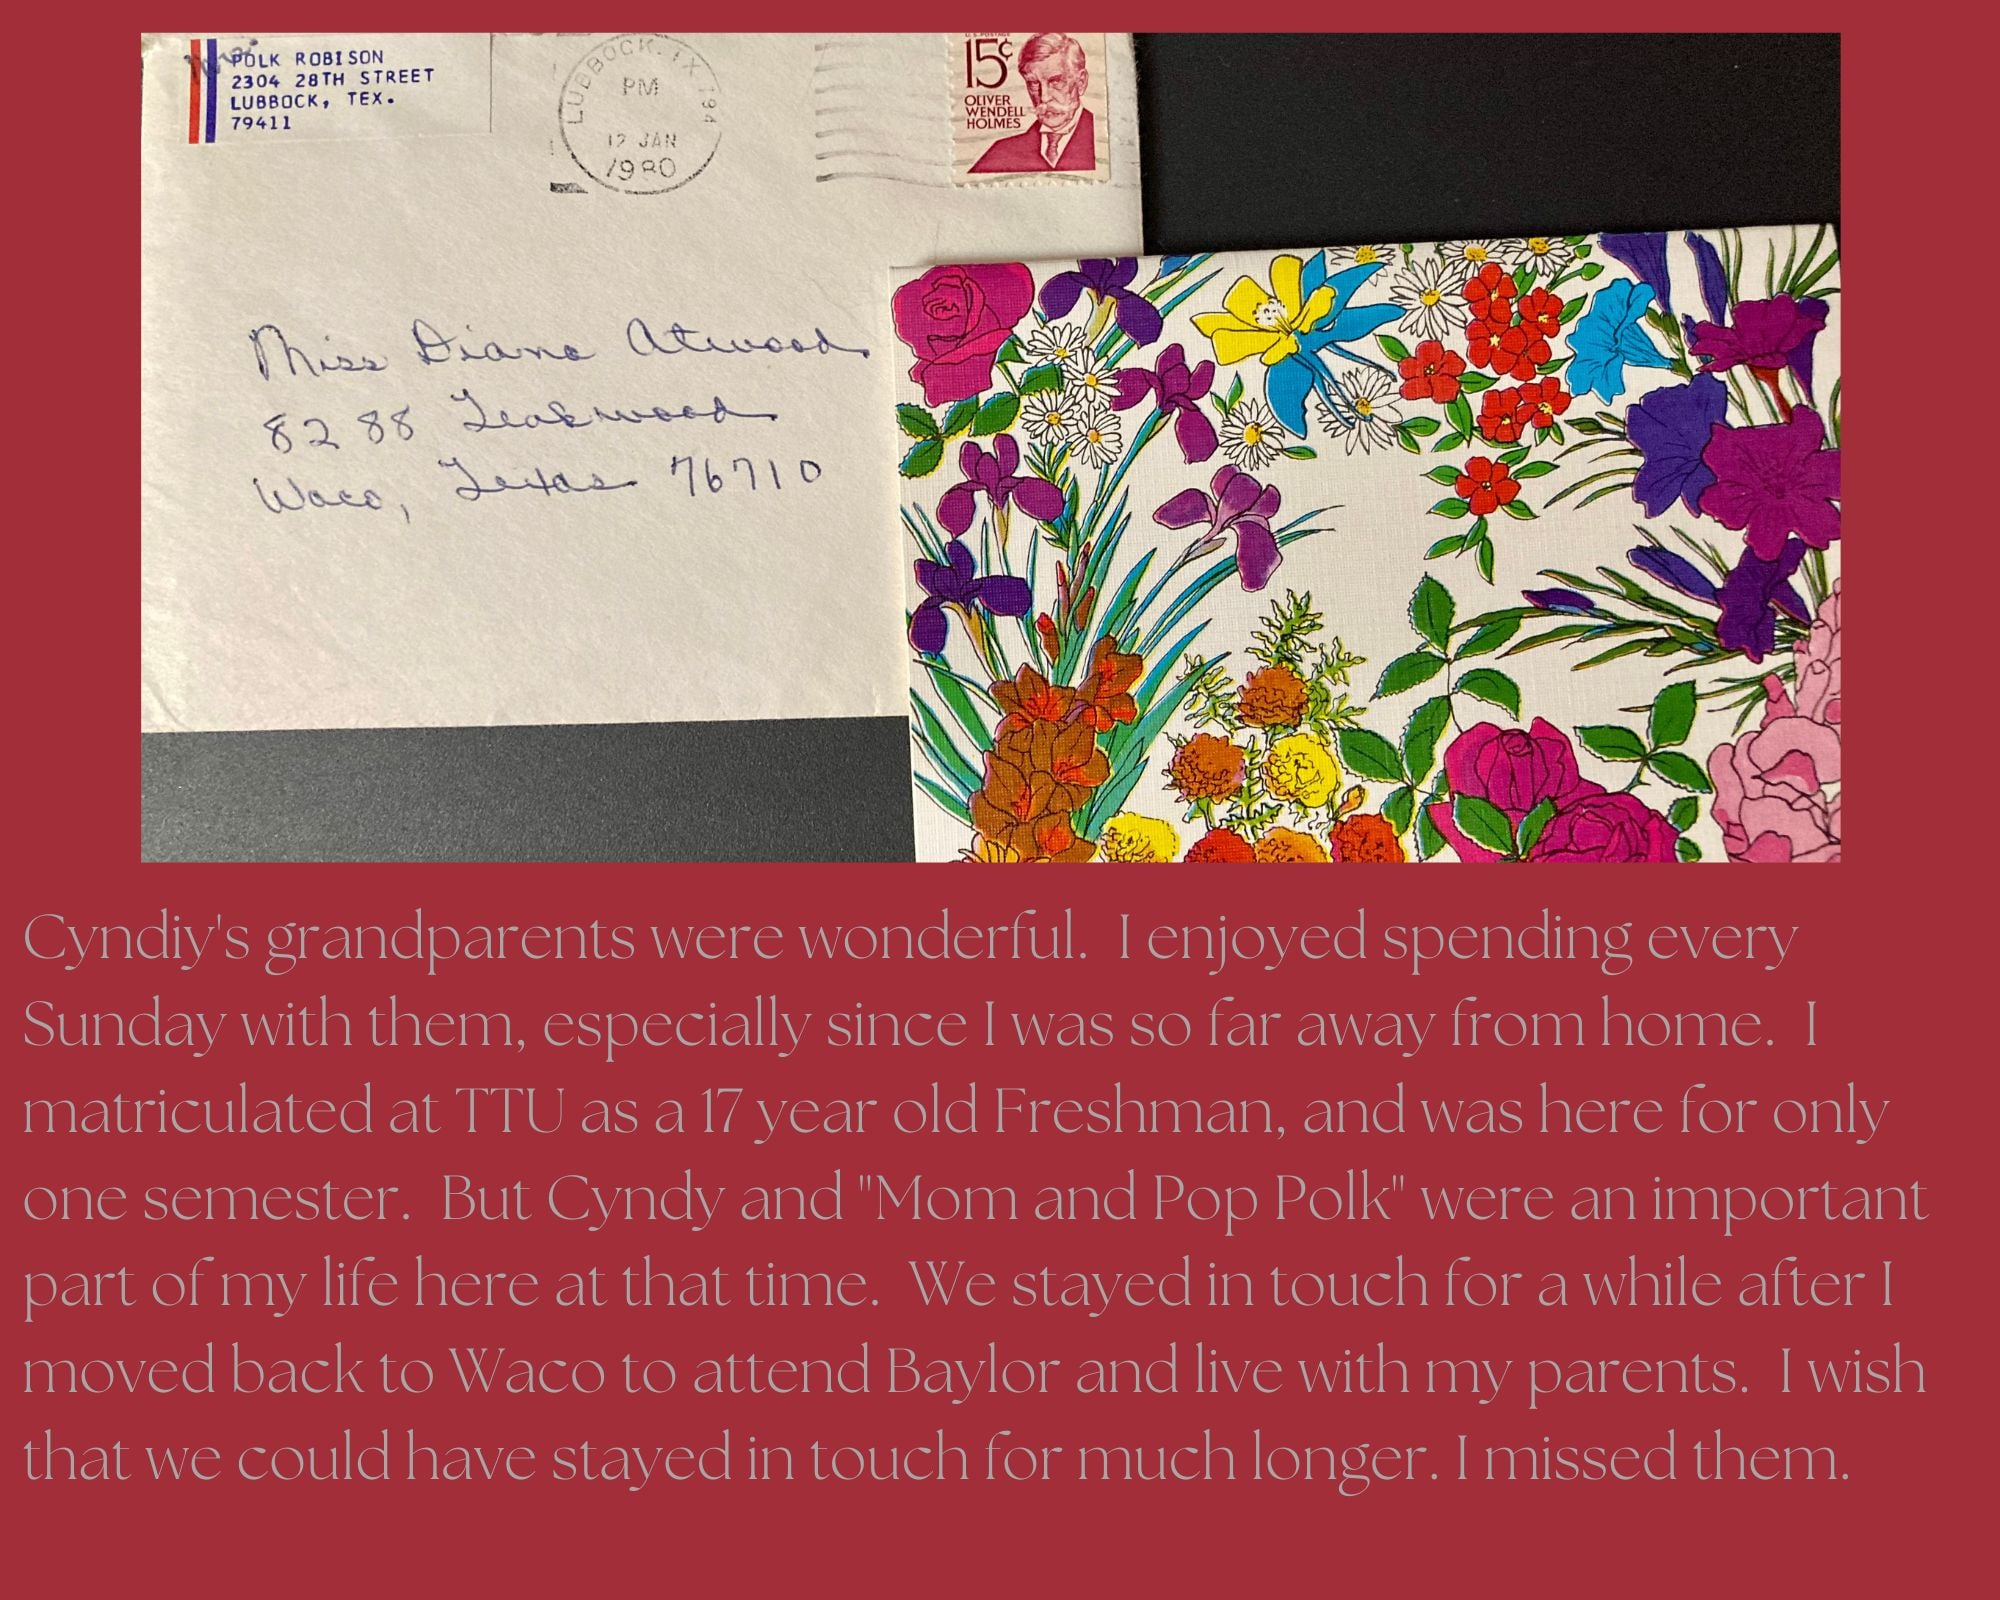 Mrs.
POLK ROBISON
2304 28TH STREET
LUBBOCK, TEX.
79411
LUBBOCK, TX 794
PM
12 JAN
1980
U.S. POSTAGE
15¢
OLIVER
WENDELL
HOLMES
Miss Diane Atwood
8288 Teakwood
Waco, Texas 76710
Cyndiy's grandparents were wonderful.  I enjoyed spending every
Sunday with them, especially since I was so far away from home.  I
matriculated at TTU as a 17 year old Freshman, and was here for only
one semester.  But Cyndy and "Mom and Pop Polk" were an important
part of my life here at that time.  We stayed in touch for a while after I
moved back to Waco to attend Baylor and live with my parents.  I wish
that we could have stayed in touch for much longer. I missed them.